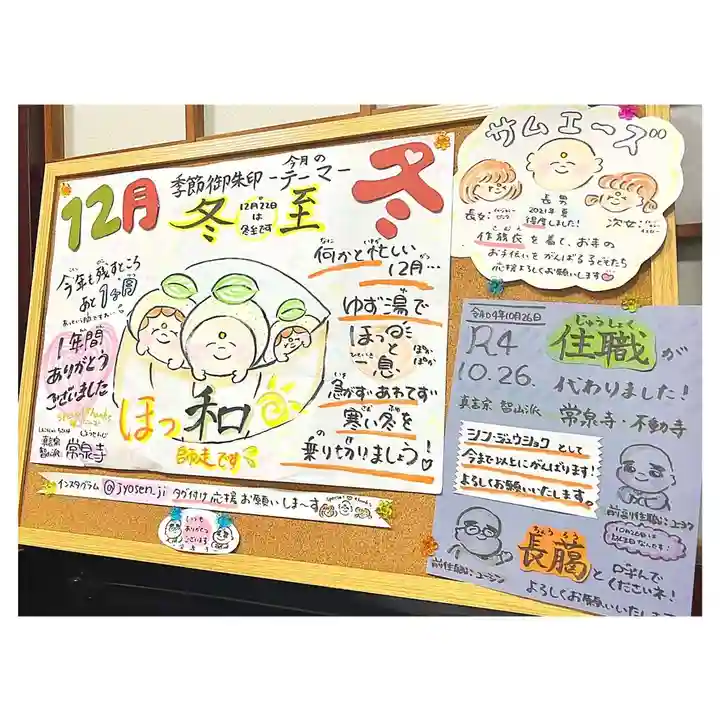 12月
季節御朱印
今月の
-テーマ-
冬
冬至
12月22日
は
冬至です
今年も残すところ
あと1週間
1年間
ありがとう
ございました
真言宗
智山派
じょうせんじ
常泉寺
ほっ和
師走です
なに いそが
何かと忙しい
がつ
12月…
ゆず湯で
ほっと
一息
ぽかぽか
急がずあわてず
寒い冬を
乗り切りましょう!
インスタグラム @jyosen.ji タグ付け応援お願いしま～す
いつも
ありがとう
ございます
サムエーズ
長男
2021年夏
得度しました!
長女:
次女:
作務衣を着て、お寺の
お手伝いをがんばる子どもたち
応援よろしくお願いします
令和4年10月26日
R4
10.26.
じゅうしょく
住職が
代わりました!
真言宗 智山派 常泉寺・不動寺
シン・ジュウショクとして
今まで以上にがんばります!
よろしくお願いいたします。
前副住職:ユーシウ
10月26日は
前住職:ユーシン
ちょうろう
長臈と呼んで
くださいネ!
よろしくお願いいたします